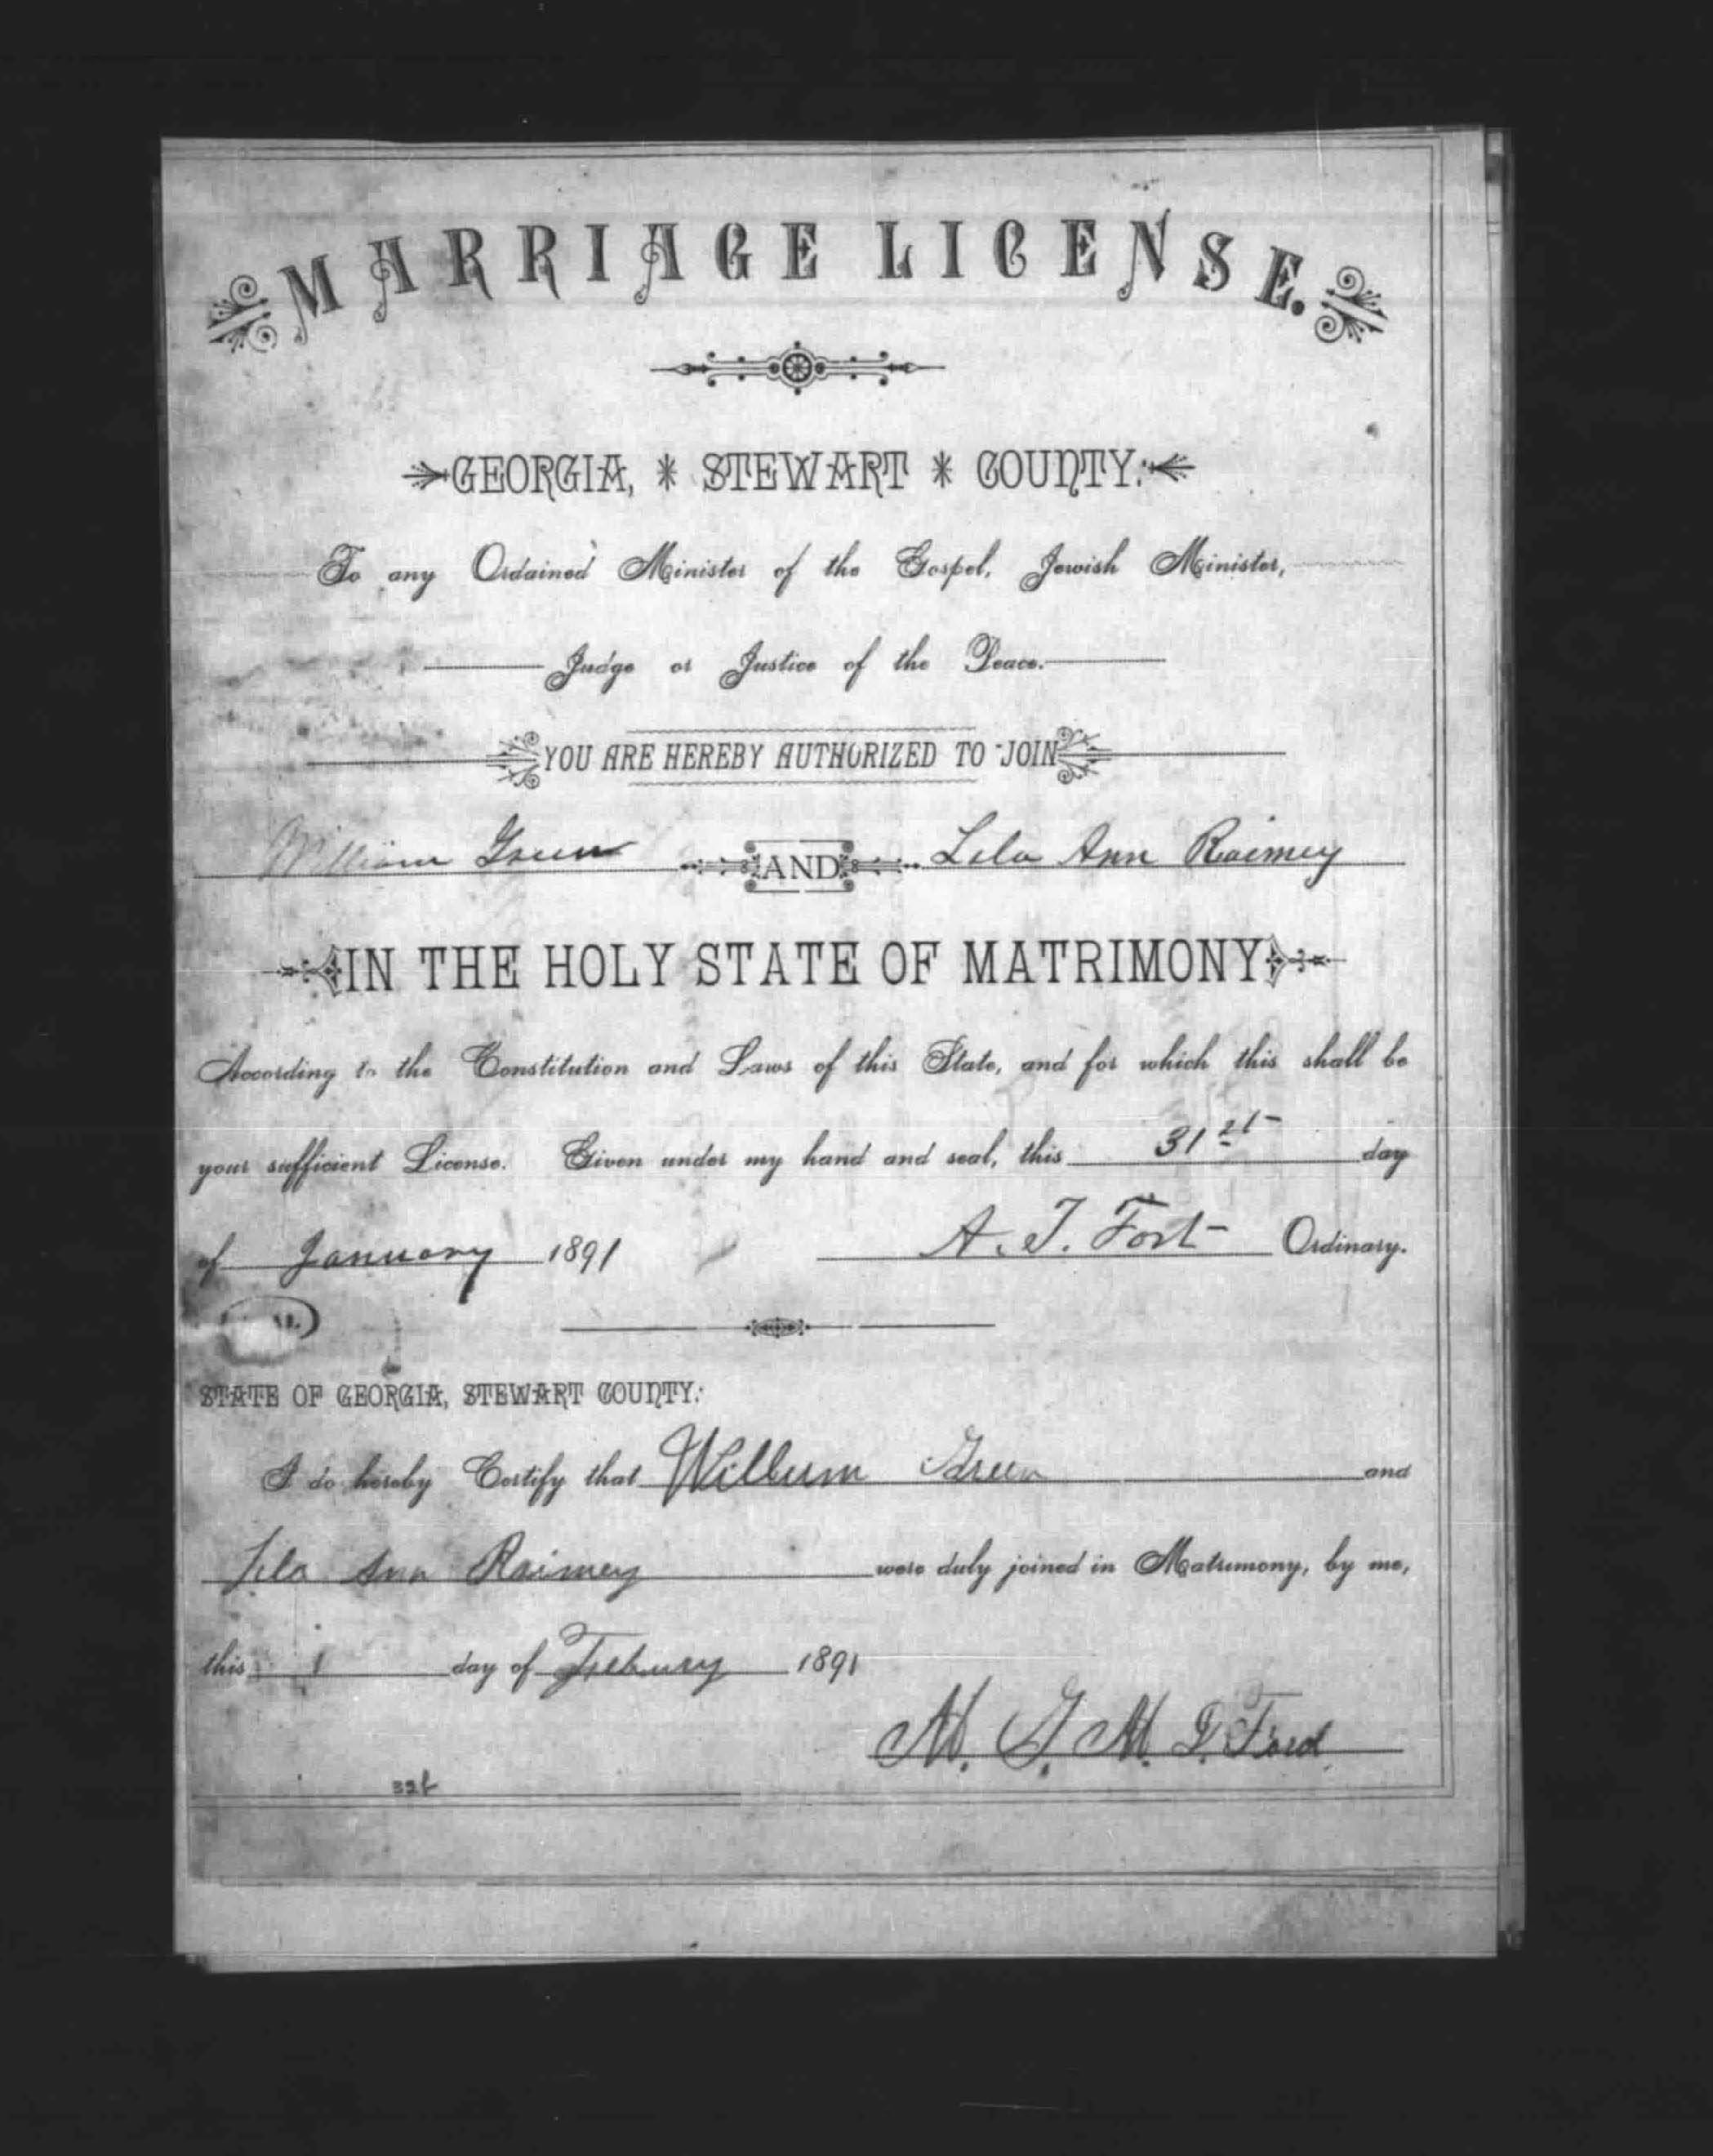 MARRIAGE LICENSE.
GEORGIA, * STEWART * COUNTY:
To any Ordained Minister of the Gospel, Jewish Minister,
Judge or Justice of the Peace.
YOU ARE HEREBY AUTHORIZED TO JOIN
William Green AND Lela Ann Raimey
IN THE HOLY STATE OF MATRIMONY
According to the Constitution and Laws of this State, and for which this shall be
your sufficient License. Given under my hand and seal, this 31st day
of January 1891 A. T. Fort Ordinary.
STATE OF GEORGIA, STEWART COUNTY:
I do hereby Certify that Willum Green and
Lela Ann Raimey were duly joined in Matrimony, by me,
this 1 day of 1891
Ford